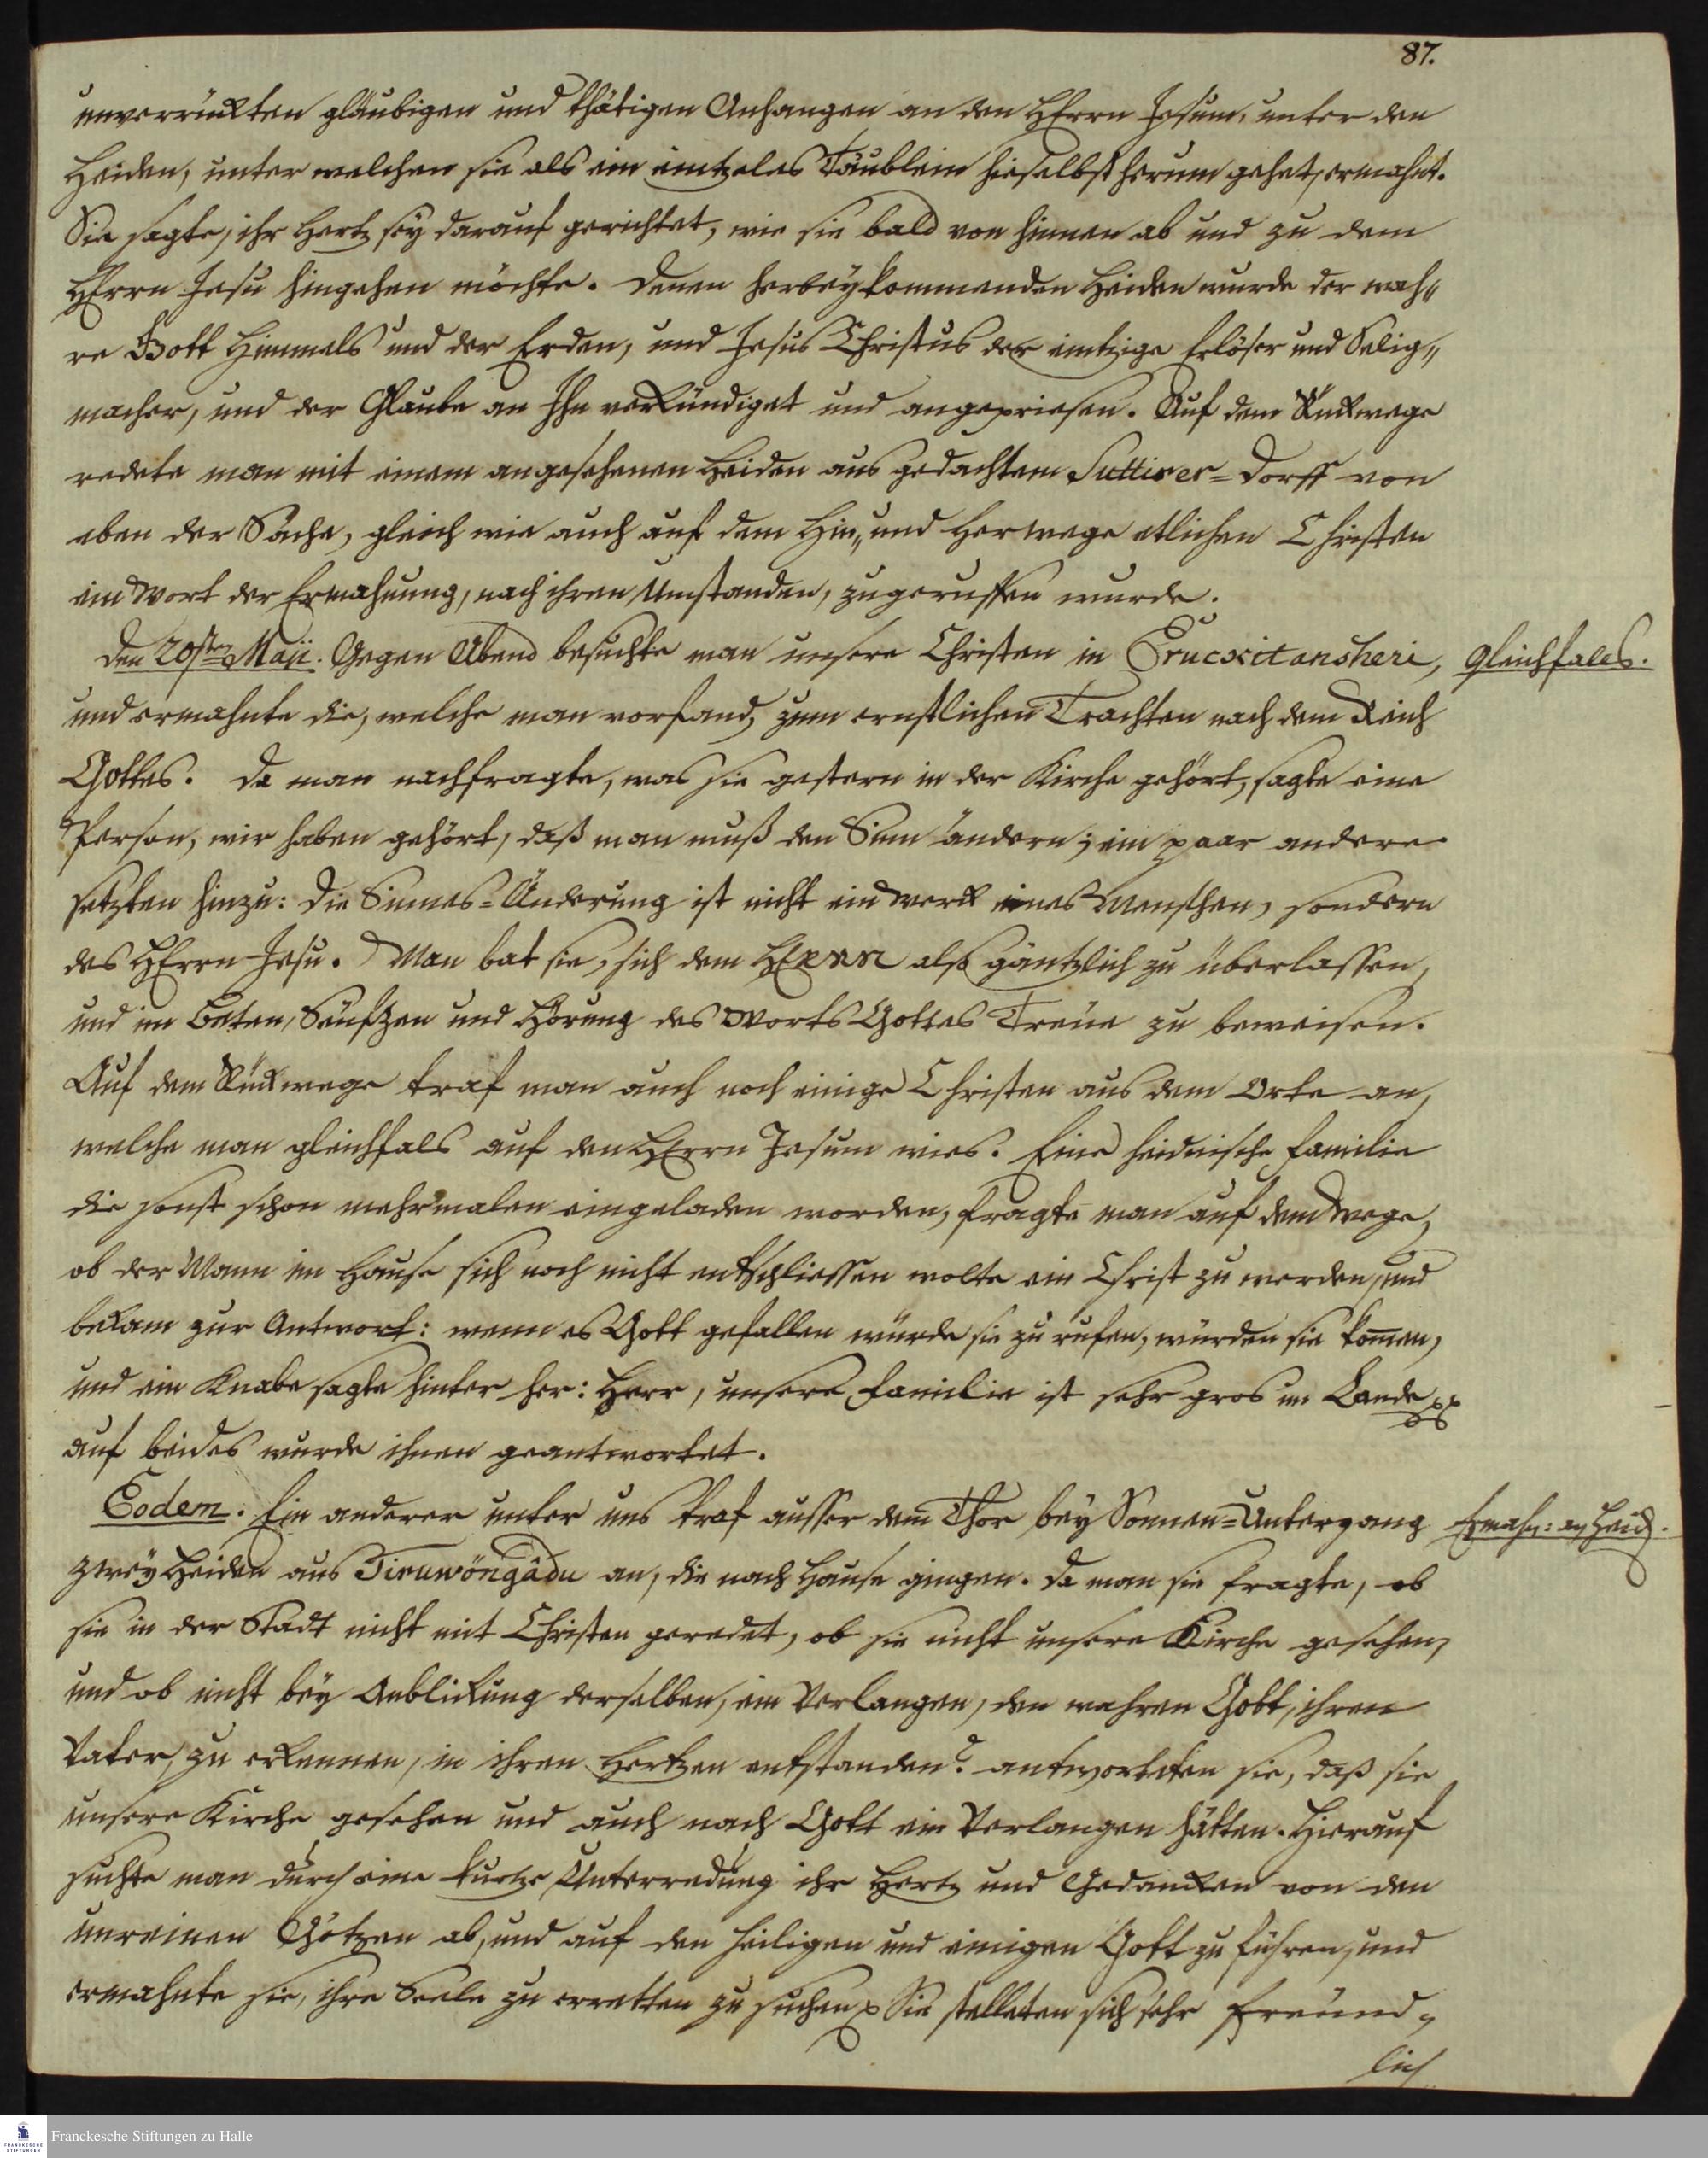 87.
unverrückten gläubigen und thätigen Anhangen an den HErrn Jesum, unter den
Heiden, unter welchen sie als ein eintzeles Täublein hieselbst herum gehet, ermahnt.
Sie sagte, ihr Hertz sey darauf gerichtet, wie sie bald von hinnen ab und zu dem
HErrn Jesu hingehen möchte. Denen herbeykommenden Heiden wurde der wah„
re Gott Himmels und der Erden, und Jesus Christus der eintzige Erlöser und Selig„
macher, und der Glaube an Ihn verkündiget und angepriesen. Auf dem Rückwege
redete man mit einem angesehenen Heiden aus gedachtem Suttirer=Dorff von
eben der Sache, gleich wie auch auf dem Hin„ und Herwege etlichen Christen
ein Wort der Ermahnung, nach ihren Umstanden, zugeruffen wurde.
Den 20sten Maji. Gegen Abend besuchte man unsere Christen in Erucxitansheri,
gleichfals.
und ermahnte die, welche man vorfand, zum ernstlichen Trachten nach dem Reich
Gottes. Da man nachfragte, was sie gestern in der Kirche gehört, sagte eine
Person, wir haben gehört, daß man muß den Sinn ändern; ein paar andere
setzten hinzu: Die Sinnes=Änderung ist nicht ein Werk eines Menschen, sondern
des HErrn Jesu. Man bat sie, sich dem HErrn also gäntzlich zu überlassen,
und im Beten, Seüfzen und Hörung des Worts Gottes Treüe zu beweisen.
Auf dem Rückwege traf man auch noch einige Christen aus dem Orte an,
welche man gleichfals auf den HErrn Jesum wies. Eine heidnische Familie
die sonst schon mehrmalen eingeladen worden, fragte man auf dem Wege,
ob der Mann im Hause sich noch nicht entschliessen wolte ein Christ zu werden, und
bekam zur Antwort: wenn es Gott gefallen würde sie zu rufen, würden sie kom̄en,
und ein Knabe sagte hinter her: Herr, unsere Familie ist sehr gros im Lande
auf beides wurde ihnen geantwortet.
Eodem. Ein anderer unter uns traf ausser dem Thor bey Sonnen=Untergang
Ermahn: an Heid.
zwey Heiden aus Tiruwöngâdu an, die nach Hause gingen. Da man sie fragte, ob
sie in der Stadt nicht mit Christen geredet, ob sie nicht unsere Kirche gesehen,
und ob nicht bey Anblickung derselben, ein Verlangen, den wahren Gott, ihren
Vater, zu erkennen, in ihren Hertzen entstanden? antworteten sie, daß sie
unsere Kirche gesehen und auch nach Gott ein Verlangen hätten. Hierauf
suchte man durch eine kurtze Unterredung ihr Hertz und Gedancken von den
unreinen Götzen ab, und auf den heiligen und einigen Gott zu führen, und
ermahnte sie, ihre Seele zu erretten zu suchen. Sie stelleten sich sehr freünd„
lich
Franckesche Stiftungen zu Halle